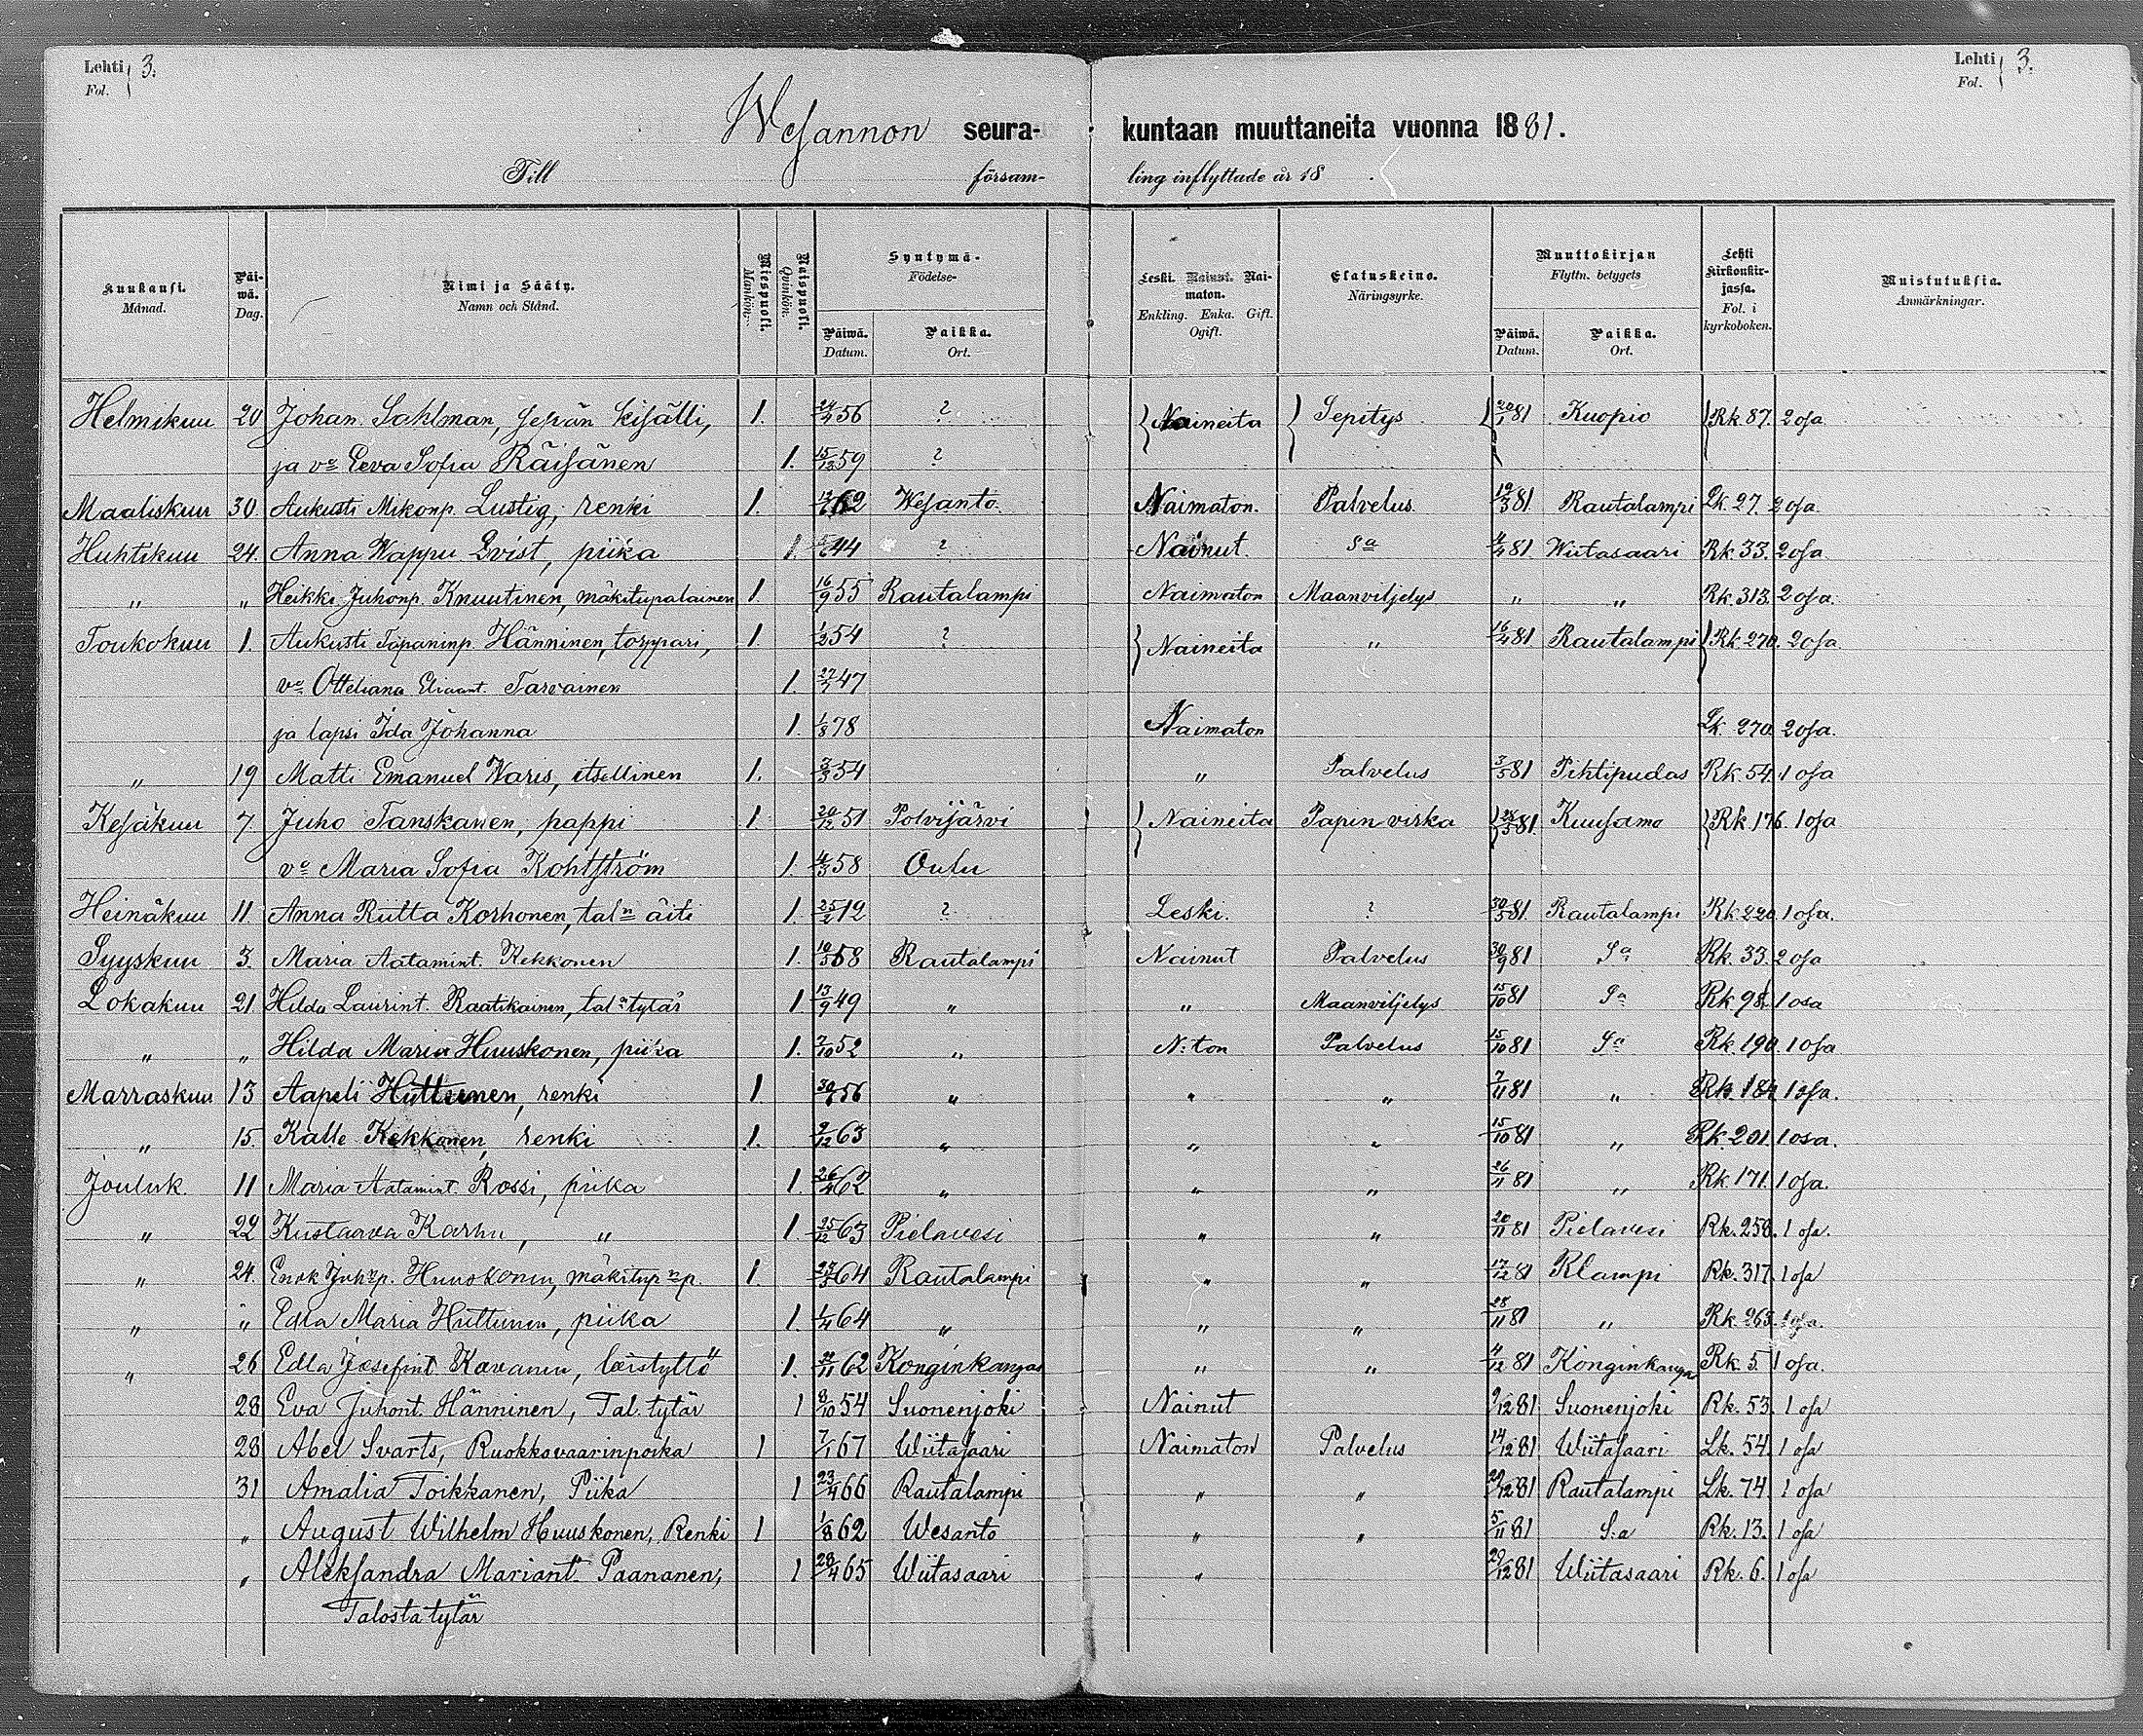 Lehti 3. Lehti 3.
Fol. Fol.
Wesannon seura- kuntaan muuttaneita vuonna 1881.
Till församling inflyttade år 18 .
Kuukausi. Månad. Päiwä. Dag. Nimi ja Sääty. Namn och Stånd. Miespuoli. Mankön. Naispuoli. Qvinkön. Syntymä- Födelse- Päiwä. Datum. Paikka. Ort. Leski. Nainut. Naimaton. Enkling. Enka. Gift. Ogift. Elatuskeino. Näringsyrke. Muuttokirjan Flyttn. betygets Päiwä. Datum. Paikka. Ort. Lehti kirkonkirjassa. Fol. i kyrkoboken. Muistutuksia. Anmärkningar.
Helmikuu 20 Johan Sahlman, sepän kisälli, 1. 24/4 56 ? Naineita Sepitys 20/1 81 Kuopio Rk. 87. 2 osa
ja vo Eeva Sofia Räisänen 1. 15/12 59 ?
Maaliskuu 30. Aukusti Mikonp. Lustig, renki 1. 62 Wesanto. Naimaton. Palvelus 19/3 81 Rautalampi Lk. 27. 2 osa.
Huhtikuu 24. Anna Wappu Qvist, piika 1. 44 ? Nainut. Sa 4/4 81 Wiitasaari Rk. 33. 2 osa
„ „ Heikki Juhonp. Knuutinen, mäkitupalainen 1. 16/9 55 Rautalampi Naimaton Maanviljelys „ „ Rk. 313. 2 osa.
Toukokuu 1. Aukusti Tapaninp. Hänninen, torppari, 1. 1/2 54 ? Naineita „ 16/4 81 Rautalampi Rk. 270. 2 osa
vo Otteliana Eliaant. Tarvainen 1. 47
ja lapsi Ida Johanna 1. 1/8 78 Naimaton Lk. 270 2 osa.
„ 19 Matti Emanuel Waris, itsellinen 1. 3/3 54 „ Palvelus 3/5 81 Pihtipudas Rk. 54. 1 osa
Kesäkuu 7. Juho Tanskanen, pappi 1. 20/12 51 Polvijärvi Naineita Papin virka 81 Kuusamo Rk. 176. 1 osa
vo Maria Sofia Kohtström 1. 4/3 58 Oulu
Heinäkuu 11. Anna Riitta Korhonen, taln äiti 1. 25/2 12 ? Leski. ? 30/5 81 Rautalampi Rk. 220. 1 osa.
Syyskuu 3. Maria Aatamint. Kekkonen 1. 58 Rautalampi Nainut Palvelus 30/9 81 Sa Rk. 33. 2 osa
Lokakuu 21. Hilda Laurint. Raatikainen, taln tytär 1. 13/9 49 „ „ Maanviljelys 15/10 81 Sa Rk. 98. 1 osa
„ „ Hilda Maria Huuskonen, piika 1. 7/10 52 „ N:ton Palvelus 15/10 81 Sa Rk. 190. 1 osa
Marraskuu 13 Aapeli Huttunen, renki 1. 56 „ „ „ 7/11 81 „ Rk. 184. 1 osa.
„ 15. Kalle Kekkonen, renki 1. 9/12 63 „ „ „ 15/10 81 „ Rk. 201. 1 osa.
Jouluk. 11 Maria Aatamint. Rossi, piika 1. 26/4 62 „ „ „ 26/11 81 „ Rk. 171. 1 osa.
„ 22 Kustaava Karhu, „ 1. 25/12 63 Pielavesi „ „ 20/11 81 Pielavesi Rk. 258. 1 osa.
„ 24. Enok Juh:np. Huuskonen, mäkitup:np. 1. 64 Rautalampi „ „ 17/12 81 Rlampi Rk. 317. 1 osa
„ „ Edla Maria Huttunen, piika 1. 1/4 64 „ „ „ 28/11 81 „ Rk. 263. 1 osa.
„ 26 Edla Josefint. Kavanen, loistyttö 1. 62 Konginkangas „ „ 4/12 81 Konginkangas Rk. 5. 1 osa.
28 Eva Juhont. Hänninen, Tal. tytär 1 8/10 54 Suonenjoki Nainut 9/12 81 Suonenjoki Rk. 53. 1 osa
28 Abel Svarts, Ruokkovaarinpoika 1 7/1 67 Wiitasaari Naimaton Palvelus 14/12 81 Wiitasaari Lk. 54. 1 osa
31 Amalia Toikkanen, Piika 1 23/4 66 Rautalampi „ „ 29/12 81 Rautalampi Lk. 74. 1 osa
„ August Wilhelm Huuskonen, Renki 1 1/8 62 Wesanto „ „ 5/11 81 S:a Rk. 13. 1 osa
„ Aleksandra Mariant. Paananen, 1 28/4 65 Wiitasaari „ 29/12 81 Wiitasaari Rk. 6. 1 osa
Talosta tytär